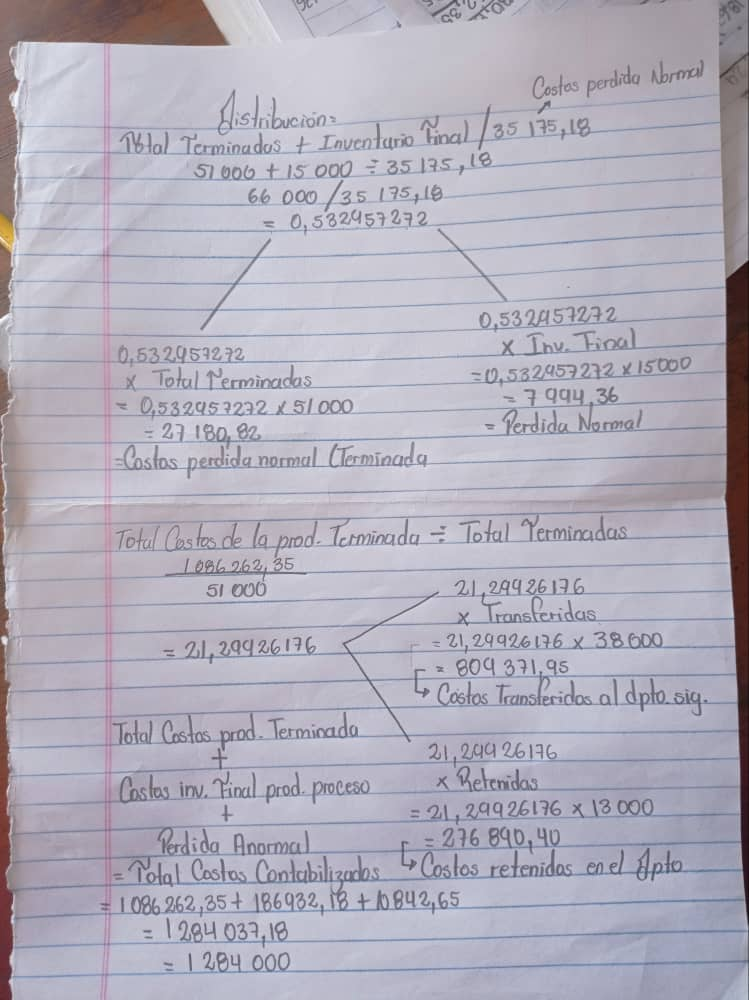 Costos perdida Normal
Distribución=
Total Terminados + Inventario Final / 35 175,18
51 000 + 15 000 ÷ 35 175,18
66 000 / 35 175,18
= 0,532957272
0,532957272
x Total Terminadas
= 0,532957272 x 51 000
= 27 180,82
=Costos perdida normal (Terminada
0,532957272
x Inv. Final
=0,532957272 x 15000
= 7 994,36
= Perdida Normal
Total Costos de la prod. Terminada ÷ Total Terminadas
1 086 262,35
51 000
= 21,29926176
21,29926176
x Transferidas
= 21,29926176 x 38 000
= 809 371,95
↳ Costos Transferidos al dpto. sig.
21,29926176
x Retenidas
= 21,29926176 x 13 000
= 276 890,40
↳ Costos retenidas en el dpto
Total Costos prod. Terminada
+
Costos inv. Final prod. proceso
+
Perdida Anormal
= Total Costos Contabilizados
= 1 086 262,35 + 186932,18 + 10842,65
= 1 284 037,18
= 1 284 000